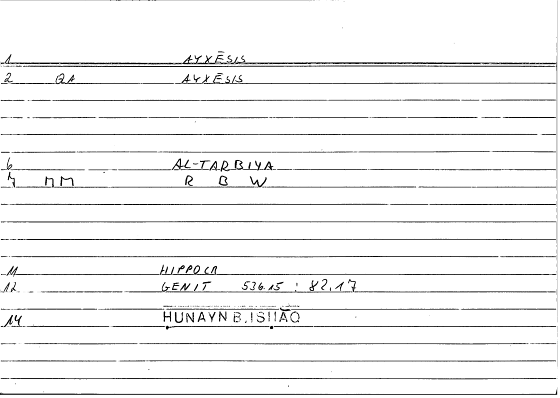 1 AYXĒSIS
2 QA AYXĒSIS
6 AL-TARBIYA
7 MM R B W
11 HIPPOCR
12 GENIT 536.15 : 82.17
14 ḤUNAYN B. ISḤĀQ